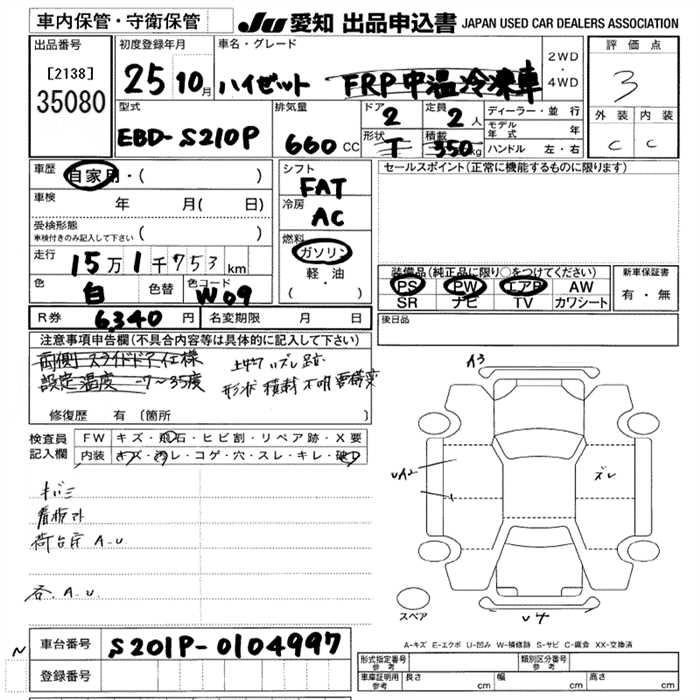 車内保管・守衛保管 JU 愛知 出品申込書 JAPAN USED CAR DEALERS ASSOCIATION
出品番号 [2138] 35080
初度登録年月 25 10月
車名・グレード ハイゼット FRP中温冷凍車 2WD・4WD
評価点 3
型式 EBD-S210P
排気量 660 CC
ドア 2 定員 2人
形状 T 積載 350kg
ディーラー・並行
モデル年式 年
ハンドル 左・右
外装 C 内装 C
車歴 自家用・( )
車検 年 月( 日)
受検形態 車検付きのみ記入して下さい ( )
走行 15万1千753km
色 白 色替 色コード W09
R券 6,340円 名変期限 月 日
シフト FAT
冷房 AC
燃料 ガソリン 軽・油 ( ・ )
セールスポイント(正常に機能するものに限ります)
装備品(純正品に限り○をつけてください)
PS PW エアB AW
SR ナビ TV カワシート
新車保証書 有・無
後日品
注意事項申告欄(不具合内容等は具体的に記入して下さい)
両側スライドドア仕様
設定温度 -7~35度
形状 積載 不明
修復歴 有 〔箇所
検査員記入欄
FW キズ・飛石・ヒビ割・リペア跡・X要
内装 キズ・汚レ・コゲ・穴・スレ・キレ・破レ
キバミ
看板アト
荷台床 A.U
各 A.U
A3
UA2
ズレ
U4
スペア
A-キズ E-エクボ U-凹み W-補修跡 S-サビ C-腐蝕 XX-交換済
車台番号 S201P-0104997
登録番号
形式指定番号 参考 類別区分番号 参考
車庫証明用 参考 長さ cm 幅 cm 高さ cm